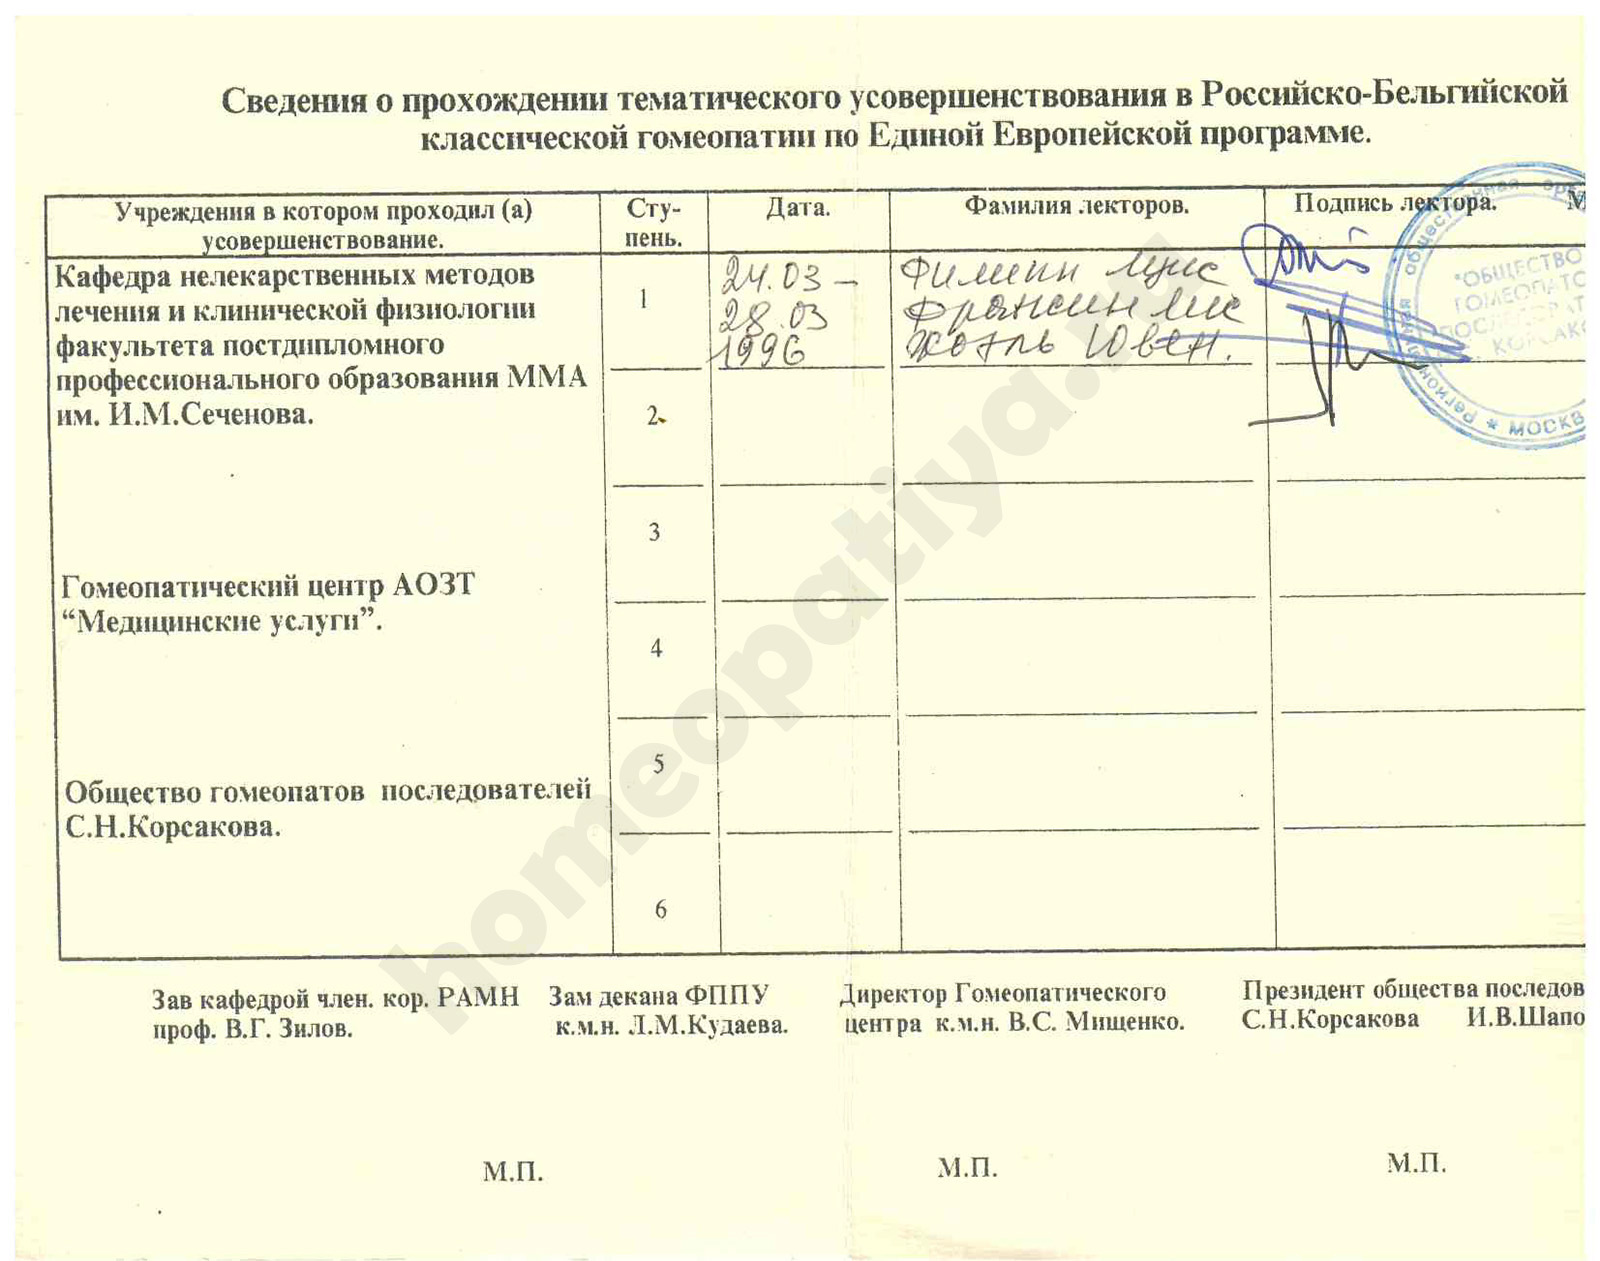 Сведения о прохождении тематического усовершенствования в Российско-Бельгийской
классической гомеопатии по Единой Европейской программе.
Учреждения в котором проходил (а)
усовершенствование.
Сту-
пень.
Дата.
Фамилия лекторов.
Подпись лектора.
М
Кафедра нелекарственных методов
лечения и клинической физиологии
факультета постдипломного
профессионального образования ММА
им. И.М.Сеченова.
Гомеопатический центр АОЗТ
“Медицинские услуги”.
Общество гомеопатов последователей
С.Н.Корсакова.
1
24.03 –
28.03
1996
Филипп
Франсин
Жоэль Ювен.
2
3
4
5
6
общественная
Региональная
* МОСКВ
"ОБЩЕСТВО
ГОМЕОПАТО
ПОСЛЕДОВАТ
КОРСАКО
Зав кафедрой член. кор. РАМН
проф. В.Г. Зилов.
Зам декана ФППУ
к.м.н. Л.М.Кудаева.
Директор Гомеопатического
центра к.м.н. В.С. Мищенко.
Президент общества последов
С.Н.Корсакова И.В.Шапо
М.П.
М.П.
М.П.
homeopatiya.ru